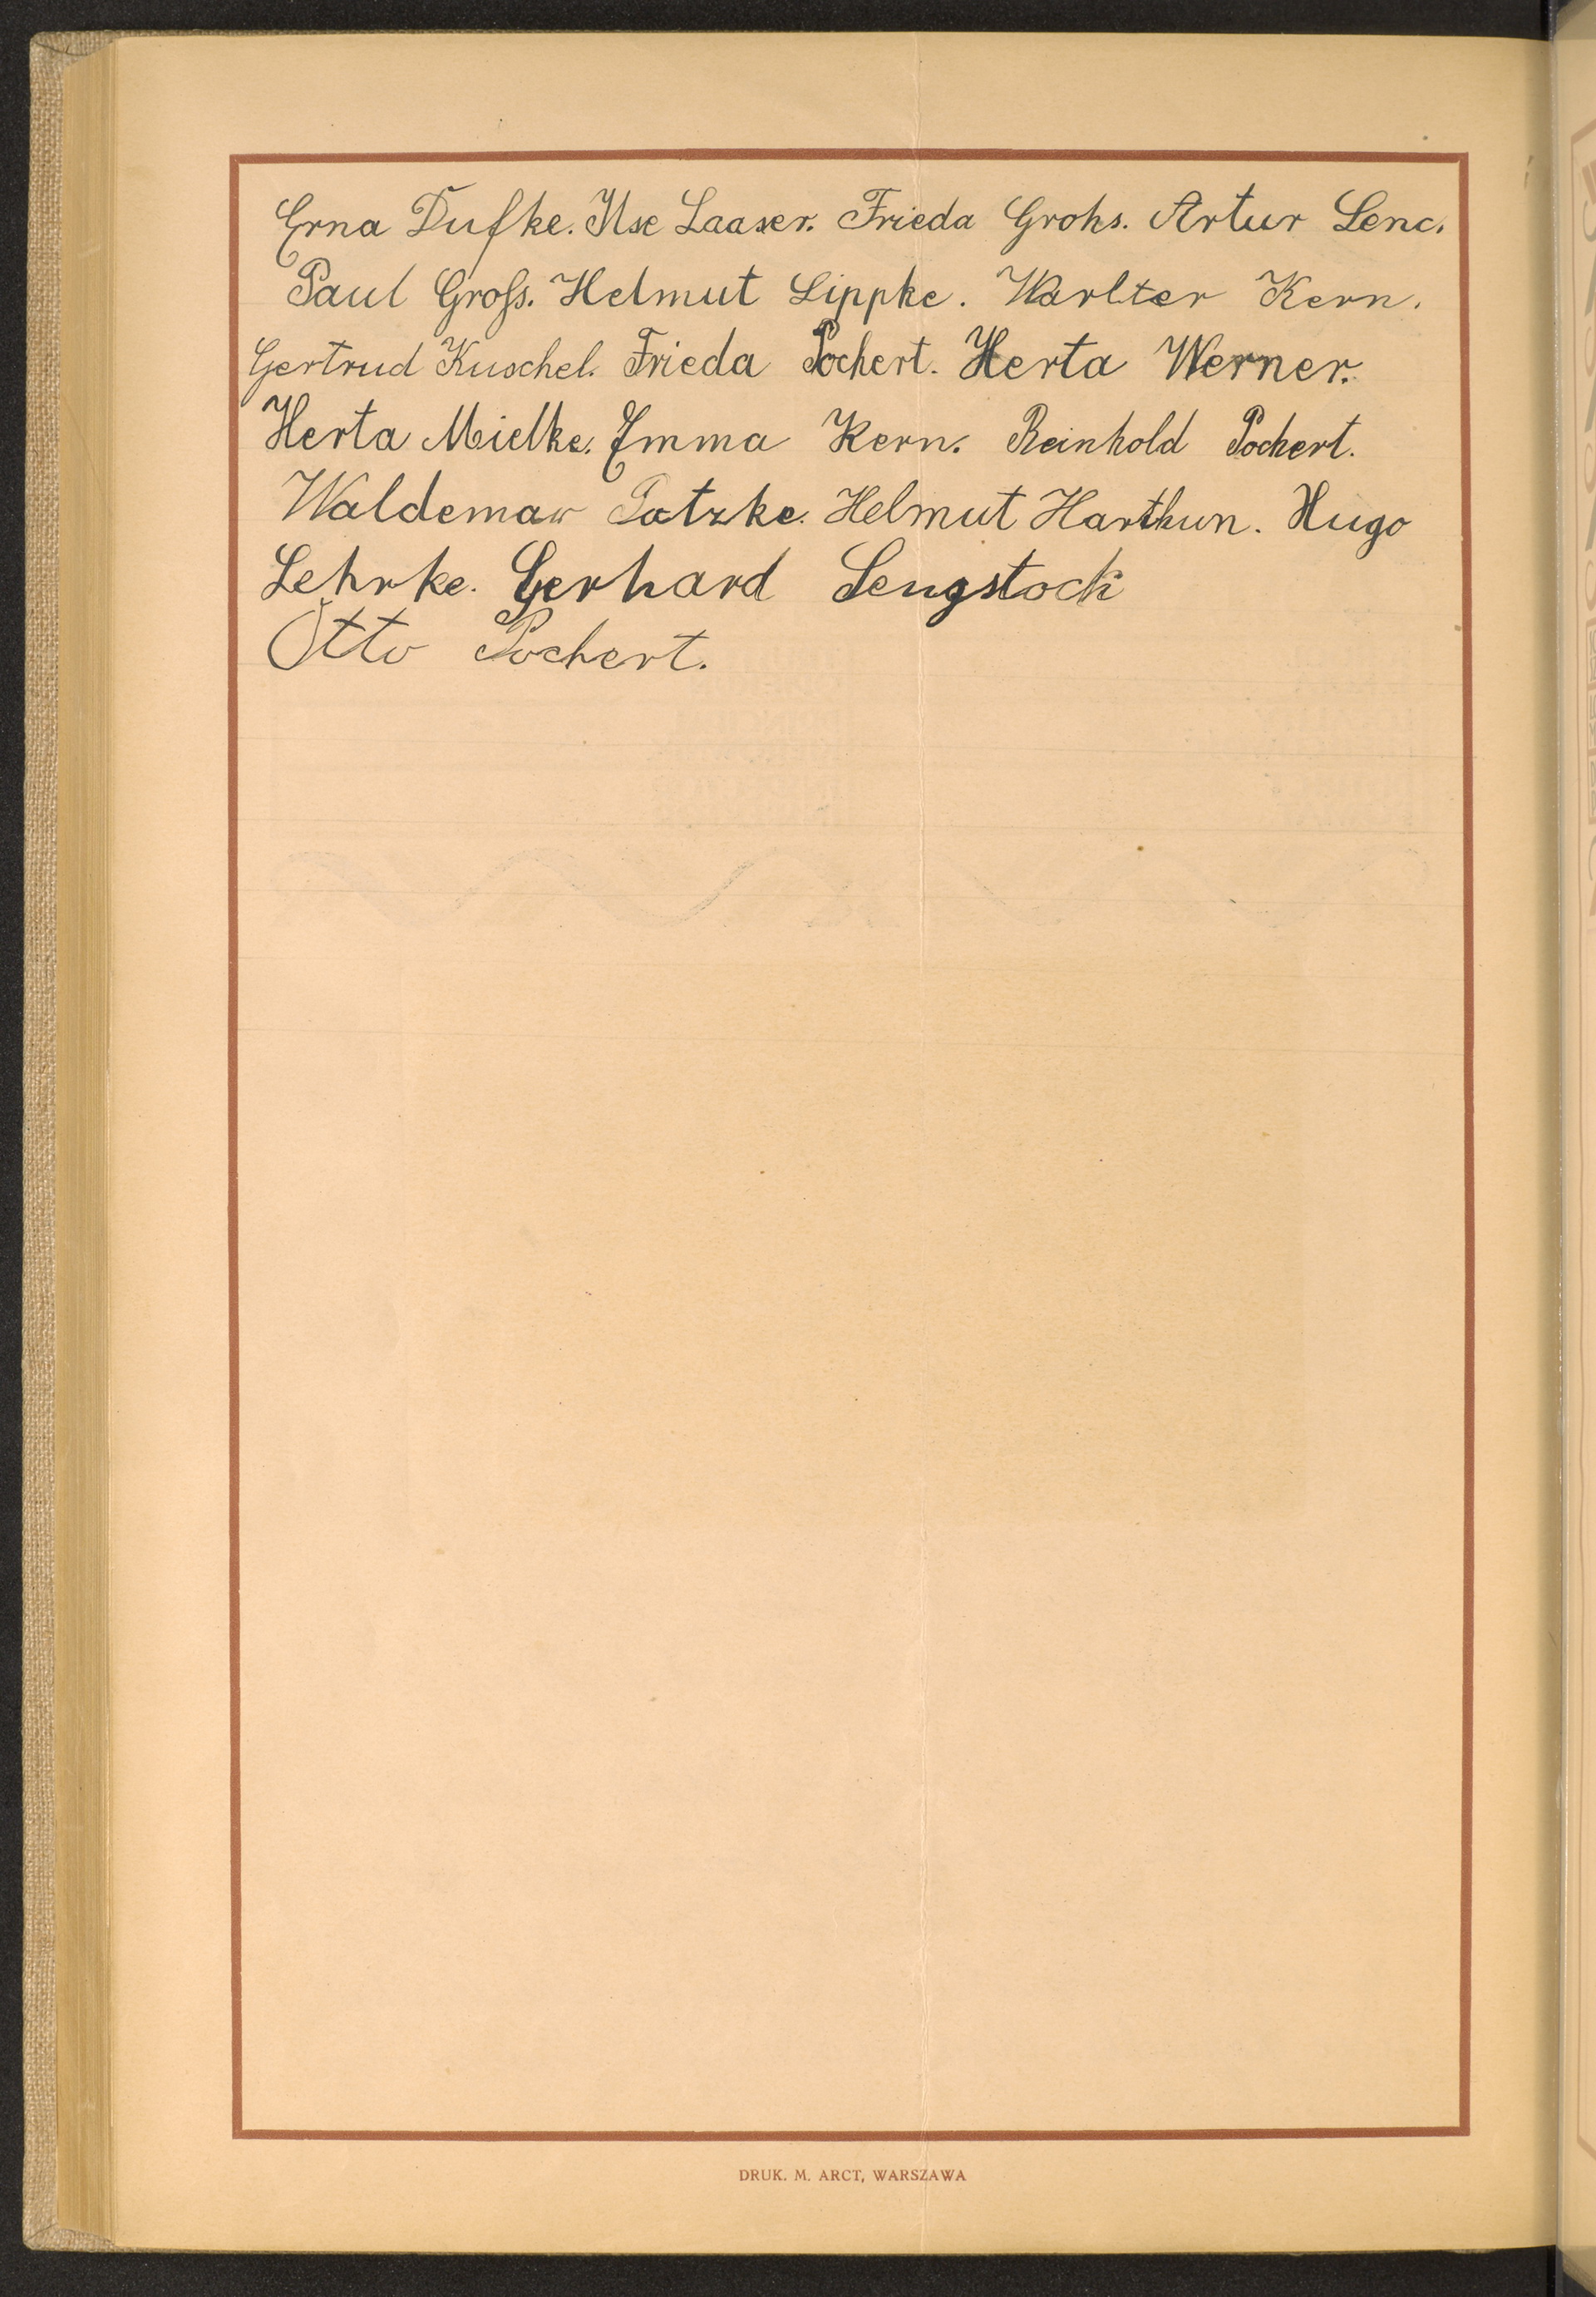 Erna Dufke. Ilse Laaser. Frieda Grohs. Artur Lenc.
Paul Groſs. Helmut Lippke. Warlter Kern.
Gertrud Kuschel. Frieda Pochert. Herta Werner.
Herta Mielke. Emma Kern. Reinhold Pochert.
Waldemar Patzke. Helmut Harthun. Hugo
Lehrke. Gerhard Sengstock
Otto Pochert.
DRUK. M. ARCT, WARSZAWA